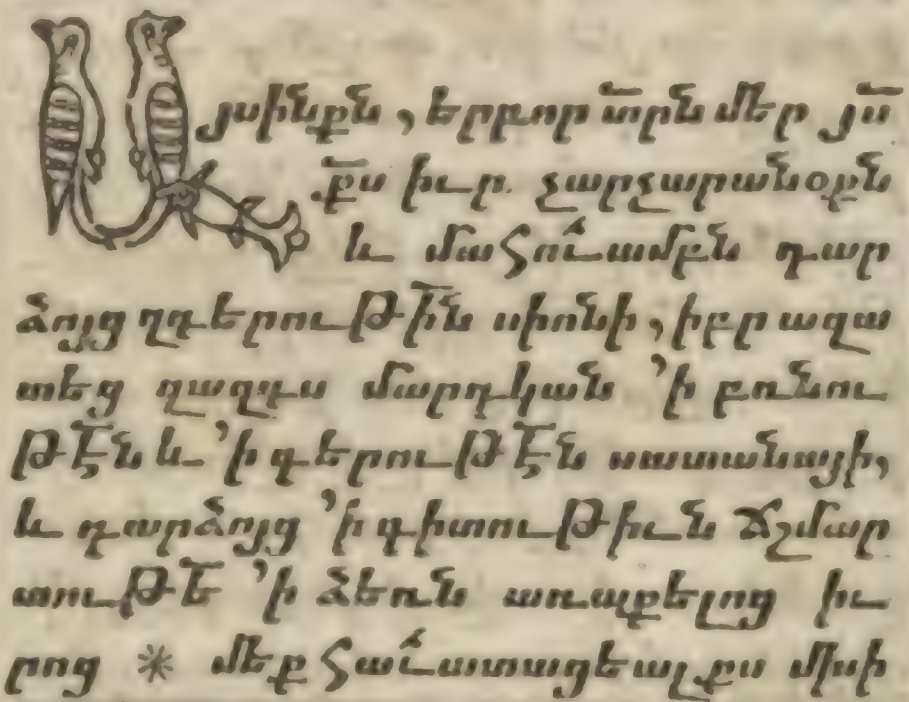 Այսինքն, երբոր տրն մեր յս
քս իւր չարչարանօքն
և մահուամբն դար
ձոյց զգերութին սիոնի, իբր ազա
տեց զազգս մարդկան ՚ի բռնու
թէն և ՚ի գերութէն սատանայի,
և դարձոյց ՚ի գիտութիւն ճշմար
տութե ՚ի ձեռն առաքելոց իւ
րոց * մեք հաւատացեալքս մխի